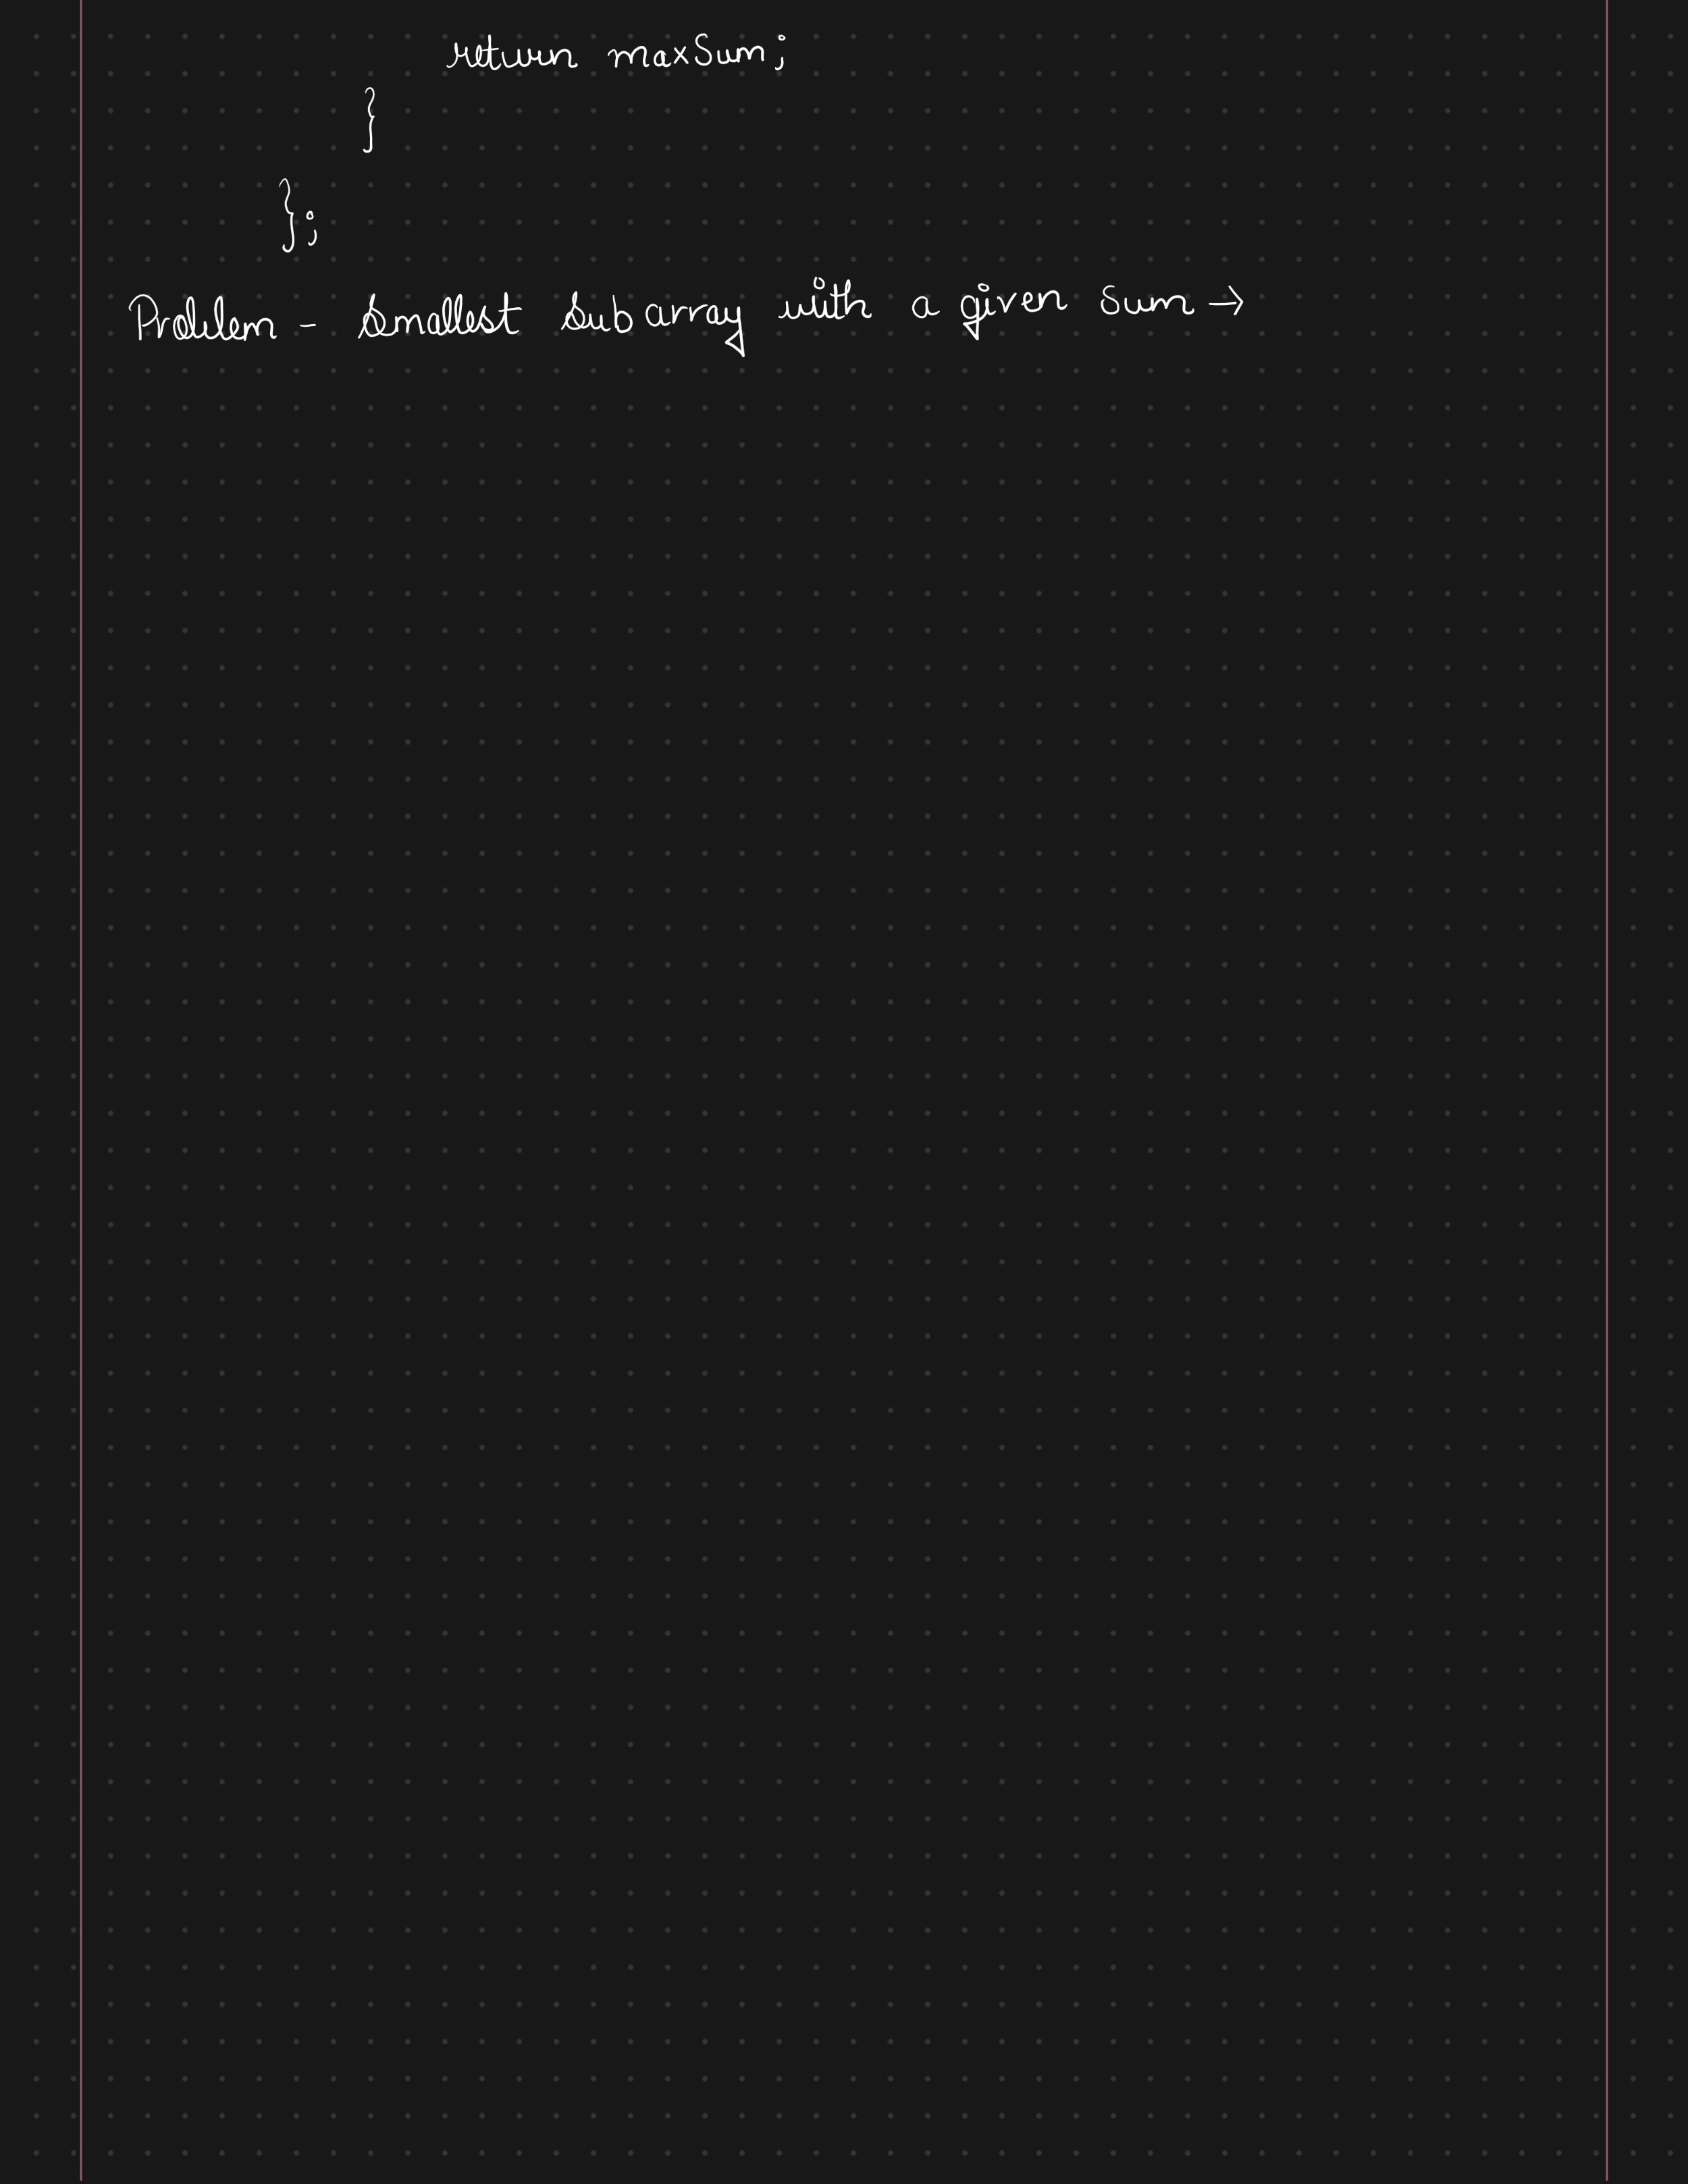 return maxSum;
}
};
Problem - Smallest Subarray with a given sum →